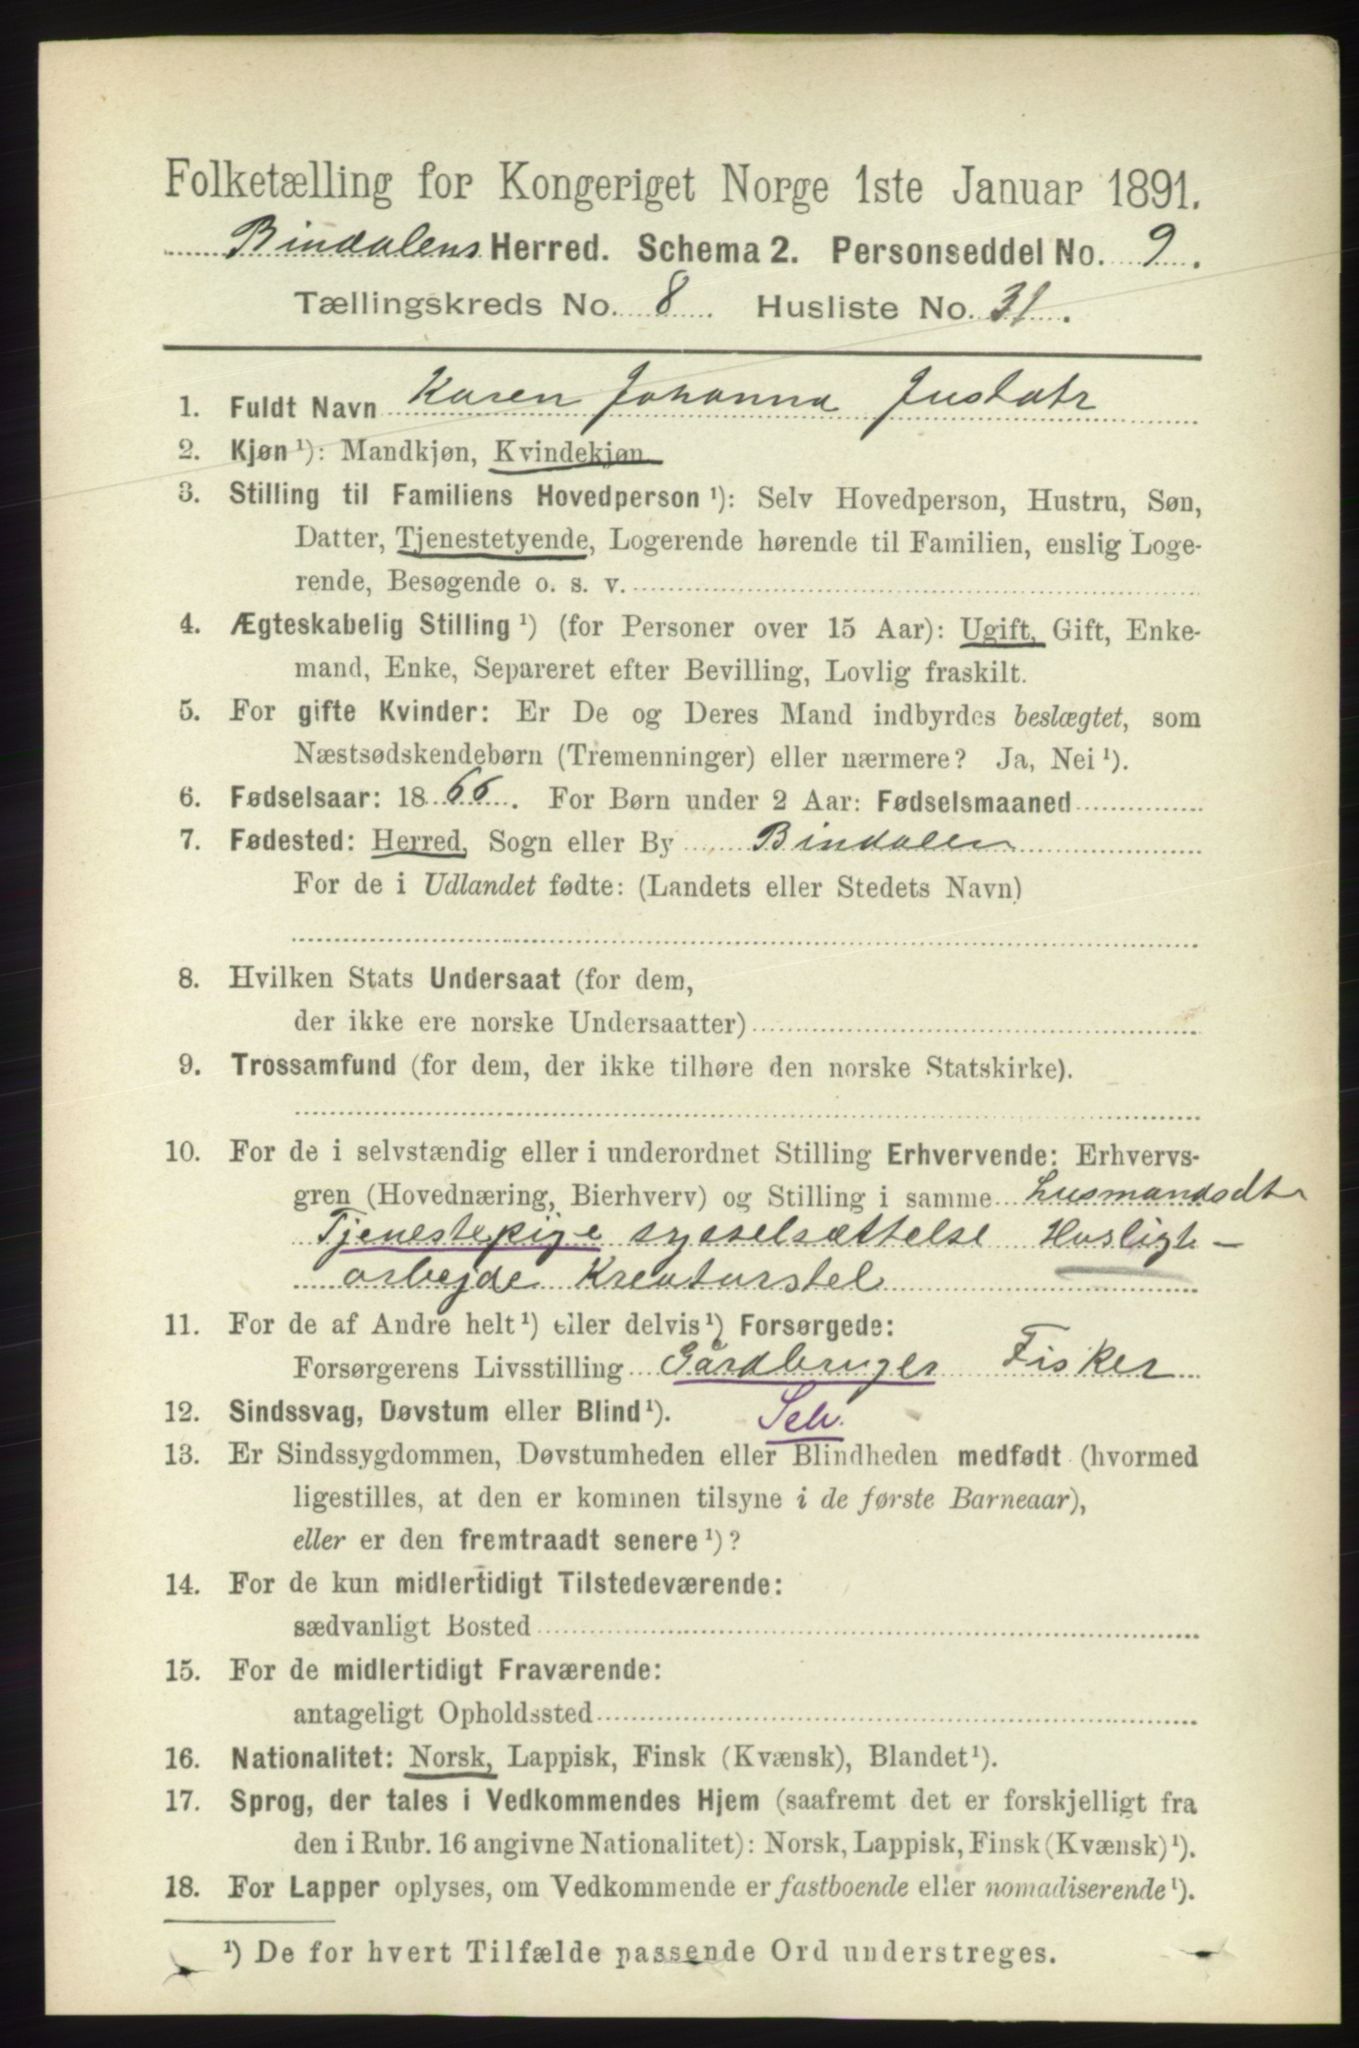 Folketælling for Kongeriget Norge 1ste Januar 1891.
Bindalens Herred. Schema 2. Personseddel No. 9.
Tællingskreds No. 8. Husliste No. 31.
1. Fuldt Navn Karen Johanna Justatr
2. Kjøn¹): Mandkjøn, Kvindekjøn
3. Stilling til Familiens Hovedperson¹): Selv Hovedperson, Hustru, Søn,
Datter, Tjenestetyende, Logerende hørende til Familien, enslig Loge-
rende, Besøgende o. s. v.
4. Ægteskabelig Stilling¹) (for Personer over 15 Aar): Ugift, Gift, Enke-
mand, Enke, Separeret efter Bevilling, Lovlig fraskilt.
5. For gifte Kvinder: Er De og Deres Mand indbyrdes beslægtet, som
Næstsødskendebørn (Tremenninger) eller nærmere? Ja, Nei¹).
6. Fødselsaar: 1866. For Børn under 2 Aar: Fødselsmaaned
7. Fødested: Herred, Sogn eller By Bindalen
For de i Udlandet fødte: (Landets eller Stedets Navn)
8. Hvilken Stats Undersaat (for dem,
der ikke ere norske Undersaatter)
9. Trossamfund (for dem, der ikke tilhøre den norske Statskirke).
10. For de i selvstændig eller i underordnet Stilling Erhvervende: Erhvervs-
gren (Hovednæring, Bierhverv) og Stilling i samme Husmandsdtr
Tjenestepige syselsættelse Husligt-
arbejde Kreaturstel
11. For de af Andre helt¹) eller delvis¹) Forsørgede:
Forsørgerens Livsstilling Gårdbruger Fisker
12. Sindssvag, Døvstum eller Blind¹). Selv.
13. Er Sindssygdommen, Døvstumheden eller Blindheden medfødt (hvormed
ligestilles, at den er kommen tilsyne i de første Barneaar),
eller er den fremtraadt senere¹)?
14. For de kun midlertidigt Tilstedeværende:
sædvanligt Bosted
15. For de midlertidigt Fraværende:
antageligt Opholdssted
16. Nationalitet: Norsk, Lappisk, Finsk (Kvænsk), Blandet¹).
17. Sprog, der tales i Vedkommendes Hjem (saafremt det er forskjelligt fra
den i Rubr. 16 angivne Nationalitet): Norsk, Lappisk, Finsk (Kvænsk)¹).
18. For Lapper oplyses, om Vedkommende er fastboende eller nomadiserende¹).
¹) De for hvert Tilfælde passende Ord understreges.